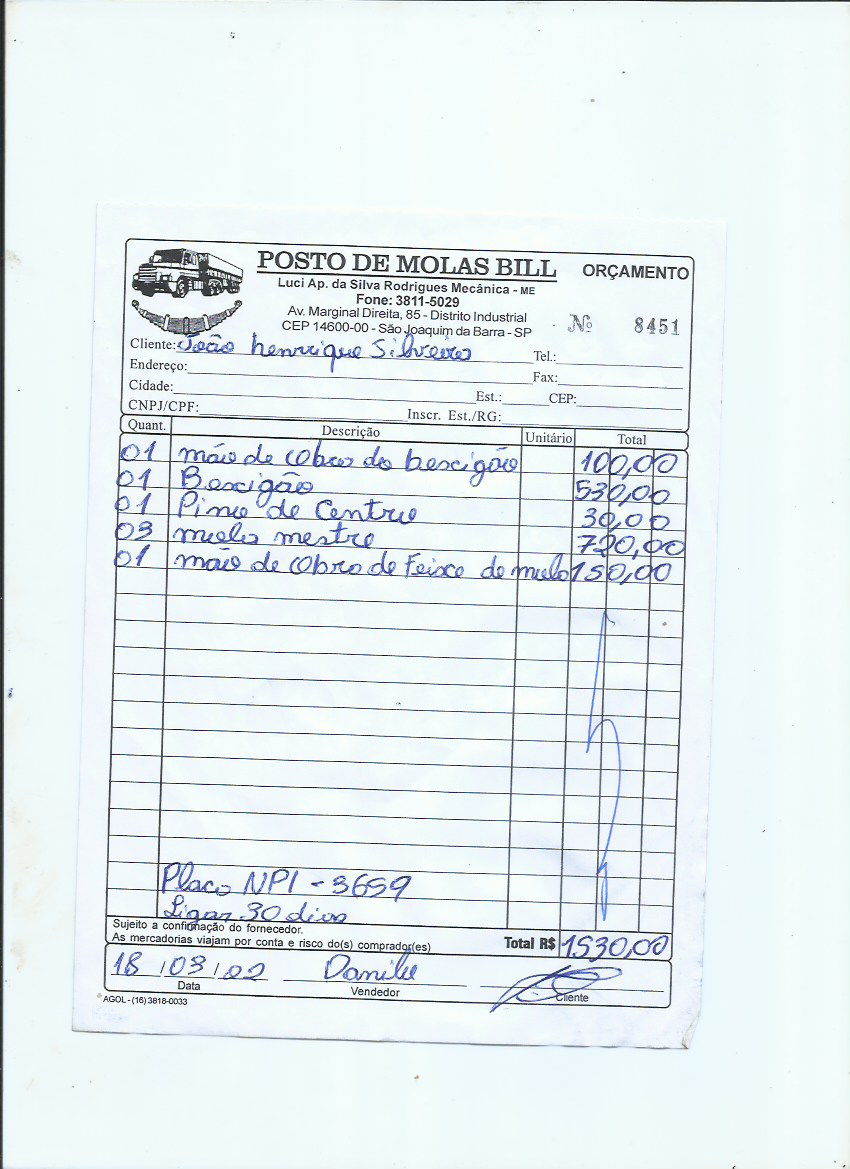 POSTO DE MOLAS BILL ORÇAMENTO
Luci Ap. da Silva Rodrigues Mecânica - ME
Fone: 3811-5029
Av. Marginal Direita, 85 - Distrito Industrial
CEP 14600-00 - São Joaquim da Barra - SP Nº 8451
Cliente: João henrique Silveira Tel.:
Endereço: Fax:
Cidade: Est.: CEP:
CNPJ/CPF: Inscr. Est./RG:
Quant. Descrição Unitário Total
01 mão de obra do bescigão 100,00
01 Bescigão 530,00
01 Pino de Centro 30,00
03 mola mestre 720,00
01 mão de obra de Feixe de mola 150,00
Placa NPI - 3659
Ligar 30 dias
Sujeito a confirmação do fornecedor.
As mercadorias viajam por conta e risco do(s) comprador(es) Total R$ 1530,00
18 / 03 / 22 Danilo
Data Vendedor Cliente
AGOL - (16) 3818-0033